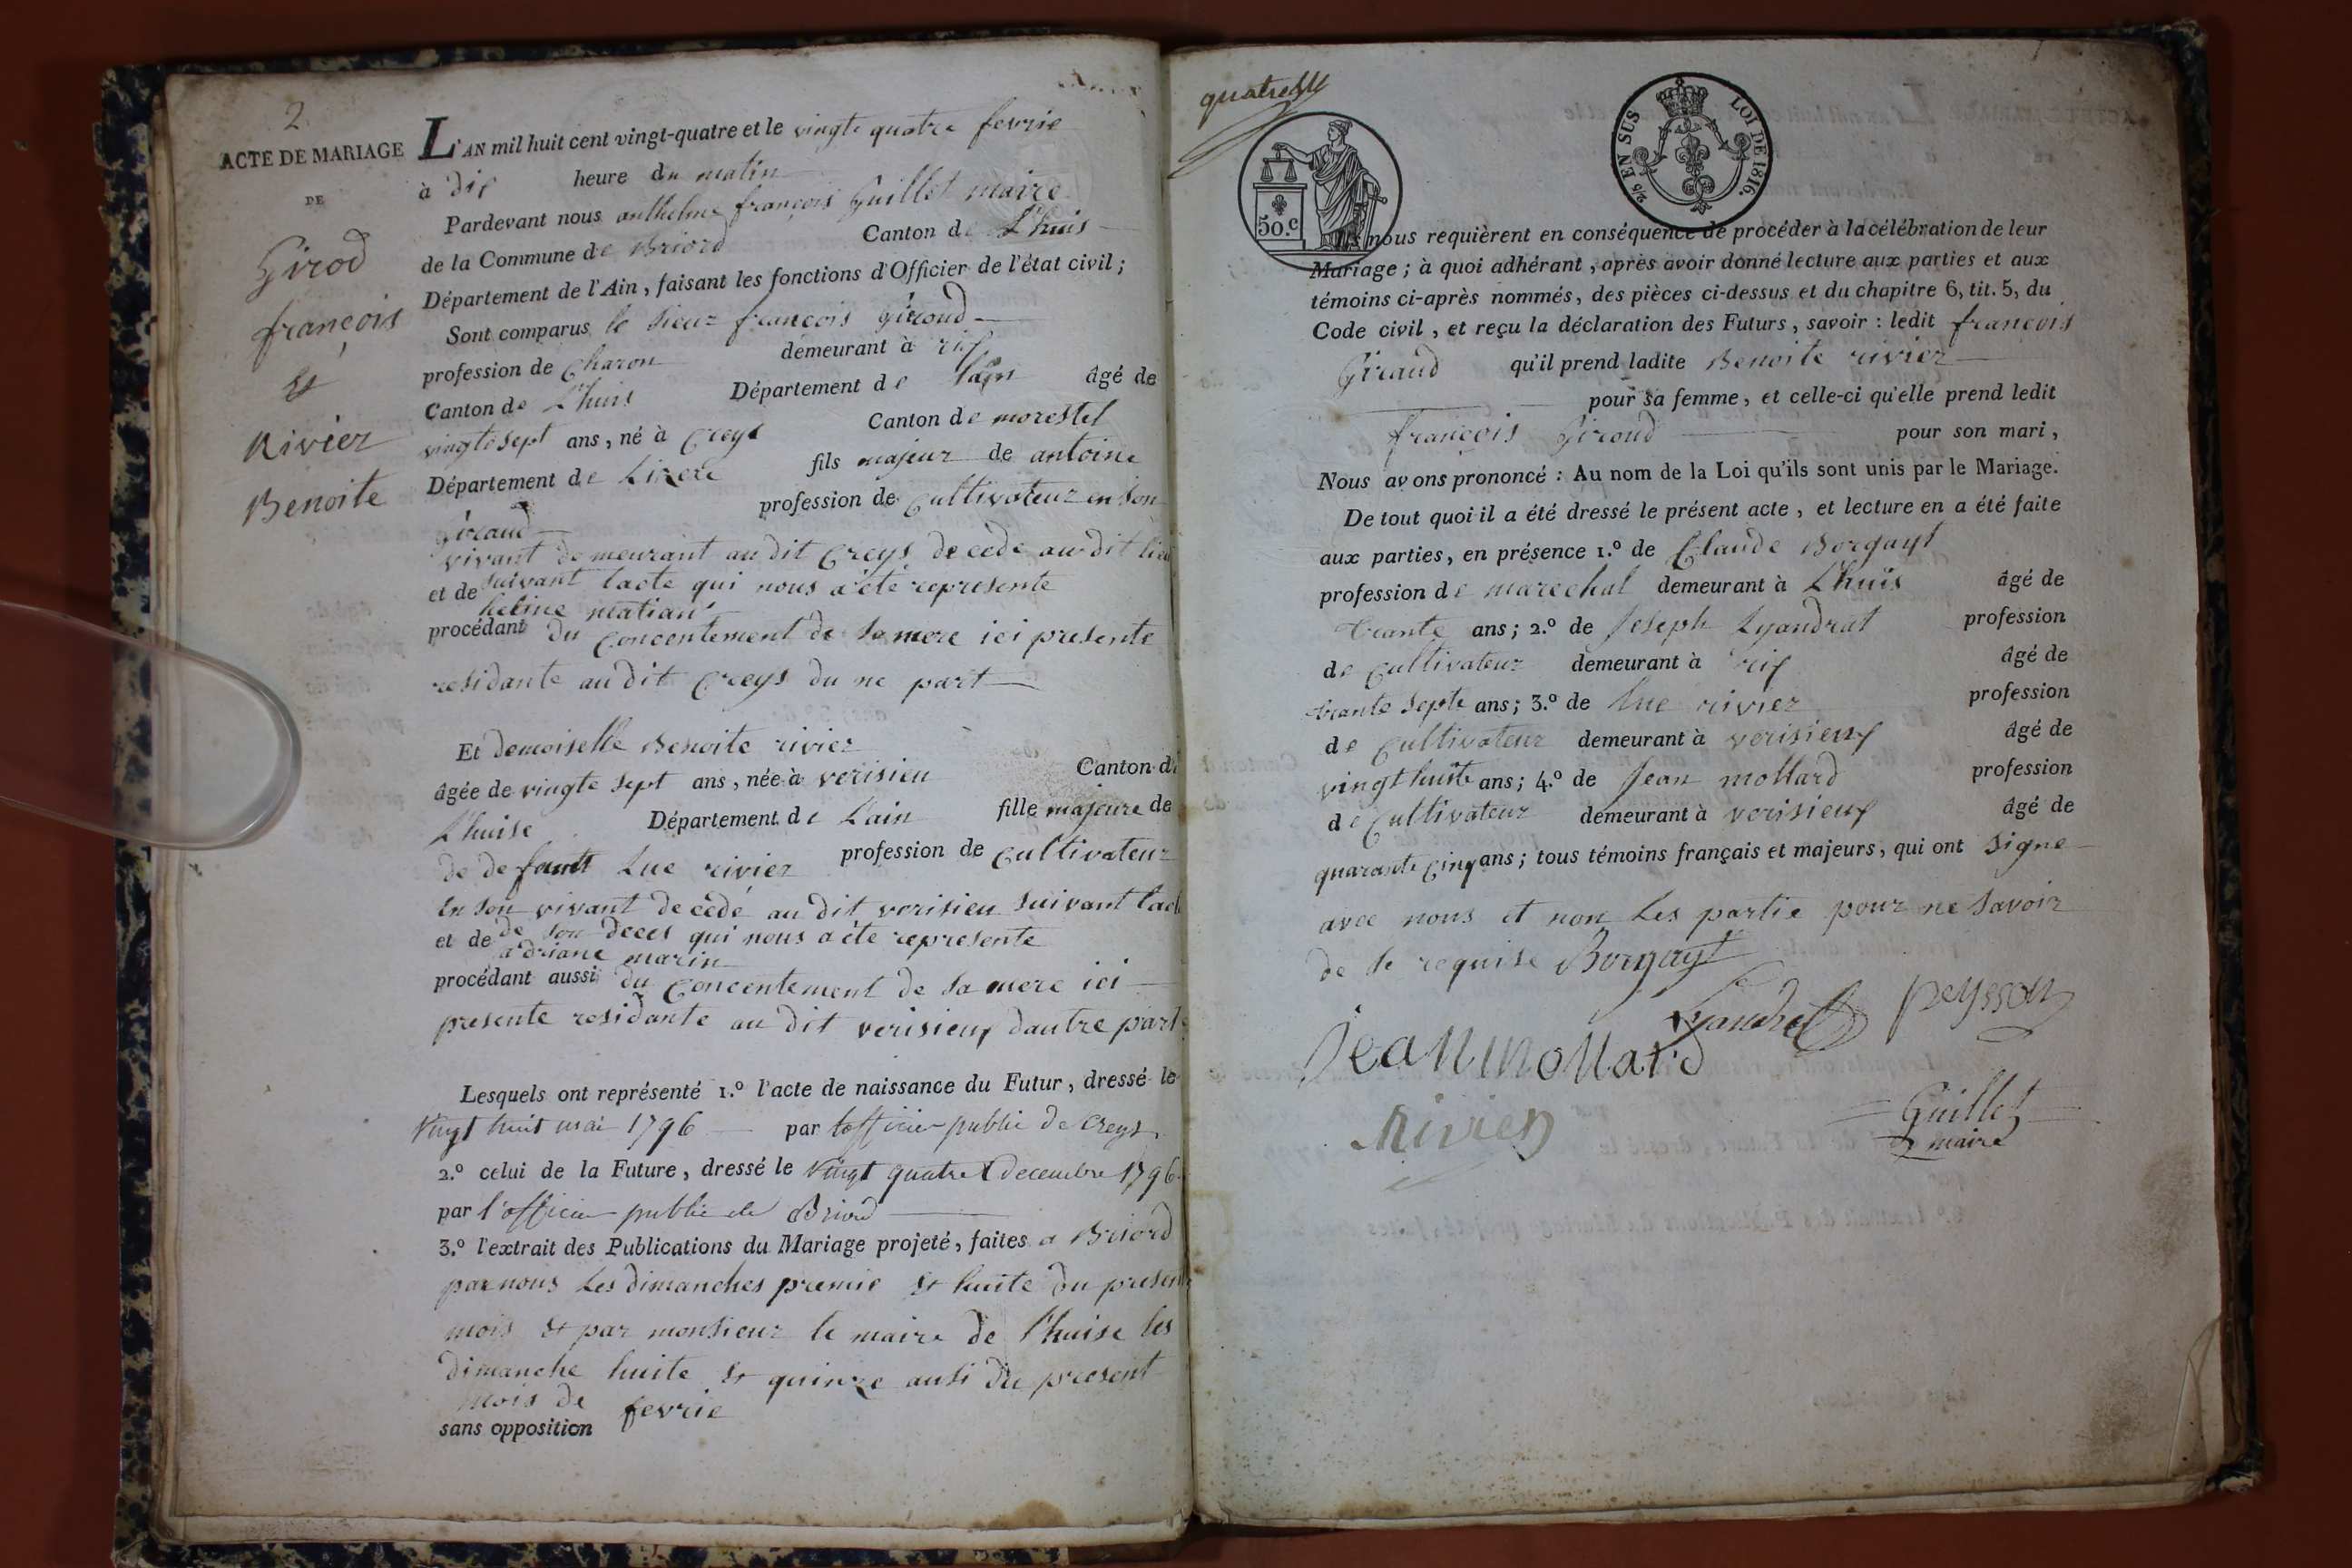 2
ACTE DE MARIAGE
DE
Girod
françois
et
Rivier
Benoite
L'AN mil huit cent vingt-quatre et le vingte quatre fevrie
à dix heure du matin
Pardevant nous anthelme françois Guillet maire
de la Commune de Briord Canton de L'huis
Département de l'Ain, faisant les fonctions d'Officier de l'état civil;
Sont comparus le sieur françois Giroud
profession de charon demeurant à rix
Canton de L'huis Département de lain âgé de
vingte sept ans, né à Creys Canton de morestel
Département de Lizere fils majeur de antoine
Giraud profession de cultivateur en son
vivant demeurant au dit Creys decede au dit lieu
suivant lacte qui nous a été represente
et de heline matian
procédant du concentement de sa mere ici presente
residante au dit Creys du ne part
Et demoiselle Benoite rivier
âgée de vingte sept ans, née à verisieu Canton de
L'huise Département de Lain fille majeure de
de defunt Luc rivier profession de cultivateur
en son vivant decedé au dit verisieu suivant lacte
de son deces qui nous a ete represente
et de adriane marin
procédant aussi du concentement de sa mere ici
presente residante au dit verisieux dautre part
Lesquels ont représenté 1.º l'acte de naissance du Futur, dressé le
vingt huit mai 1796 par l'officier public de Creys
2.º celui de la Future, dressé le vingt quatre decembre 1796
par l'officier public de Briord
3.º l'extrait des Publications du Mariage projeté, faites a Briord
par nous les dimanches premie et huite du present
mois et par monsieur le maire de l'huise les
dimanche huite et quinze ausi du present
mois de fevrie
sans opposition
50.c
2/5 EN SUS LOI DE 1816.
Ils nous requièrent en conséquence de procéder à la célébration de leur
Mariage; à quoi adhérant, après avoir donné lecture aux parties et aux
témoins ci-après nommés, des pièces ci-dessus et du chapitre 6, tit. 5, du
Code civil, et reçu la déclaration des Futurs, savoir: ledit françois
Giraud qu'il prend ladite Benoite rivier
pour sa femme, et celle-ci qu'elle prend ledit
françois Giroud pour son mari,
Nous avons prononcé: Au nom de la Loi qu'ils sont unis par le Mariage.
De tout quoi il a été dressé le présent acte, et lecture en a été faite
aux parties, en présence 1.º de Claude Borgayt
profession de marechal demeurant à L'huis âgé de
trante ans; 2.º de Joseph Lyandrat profession
de cultivateur demeurant à rix âgé de
trante septe ans; 3.º de Luc rivier profession
de cultivateur demeurant à verisieux âgé de
vingt huite ans; 4.º de Jean mollard profession
de cultivateur demeurant à verisieux âgé de
quarante cinq ans; tous témoins français et majeurs, qui ont signe
avec nous et non les partie pour ne savoir
de se requise Borgayt
Lyandrat peysson
Jean mollard
Rivier
Guillet
maire